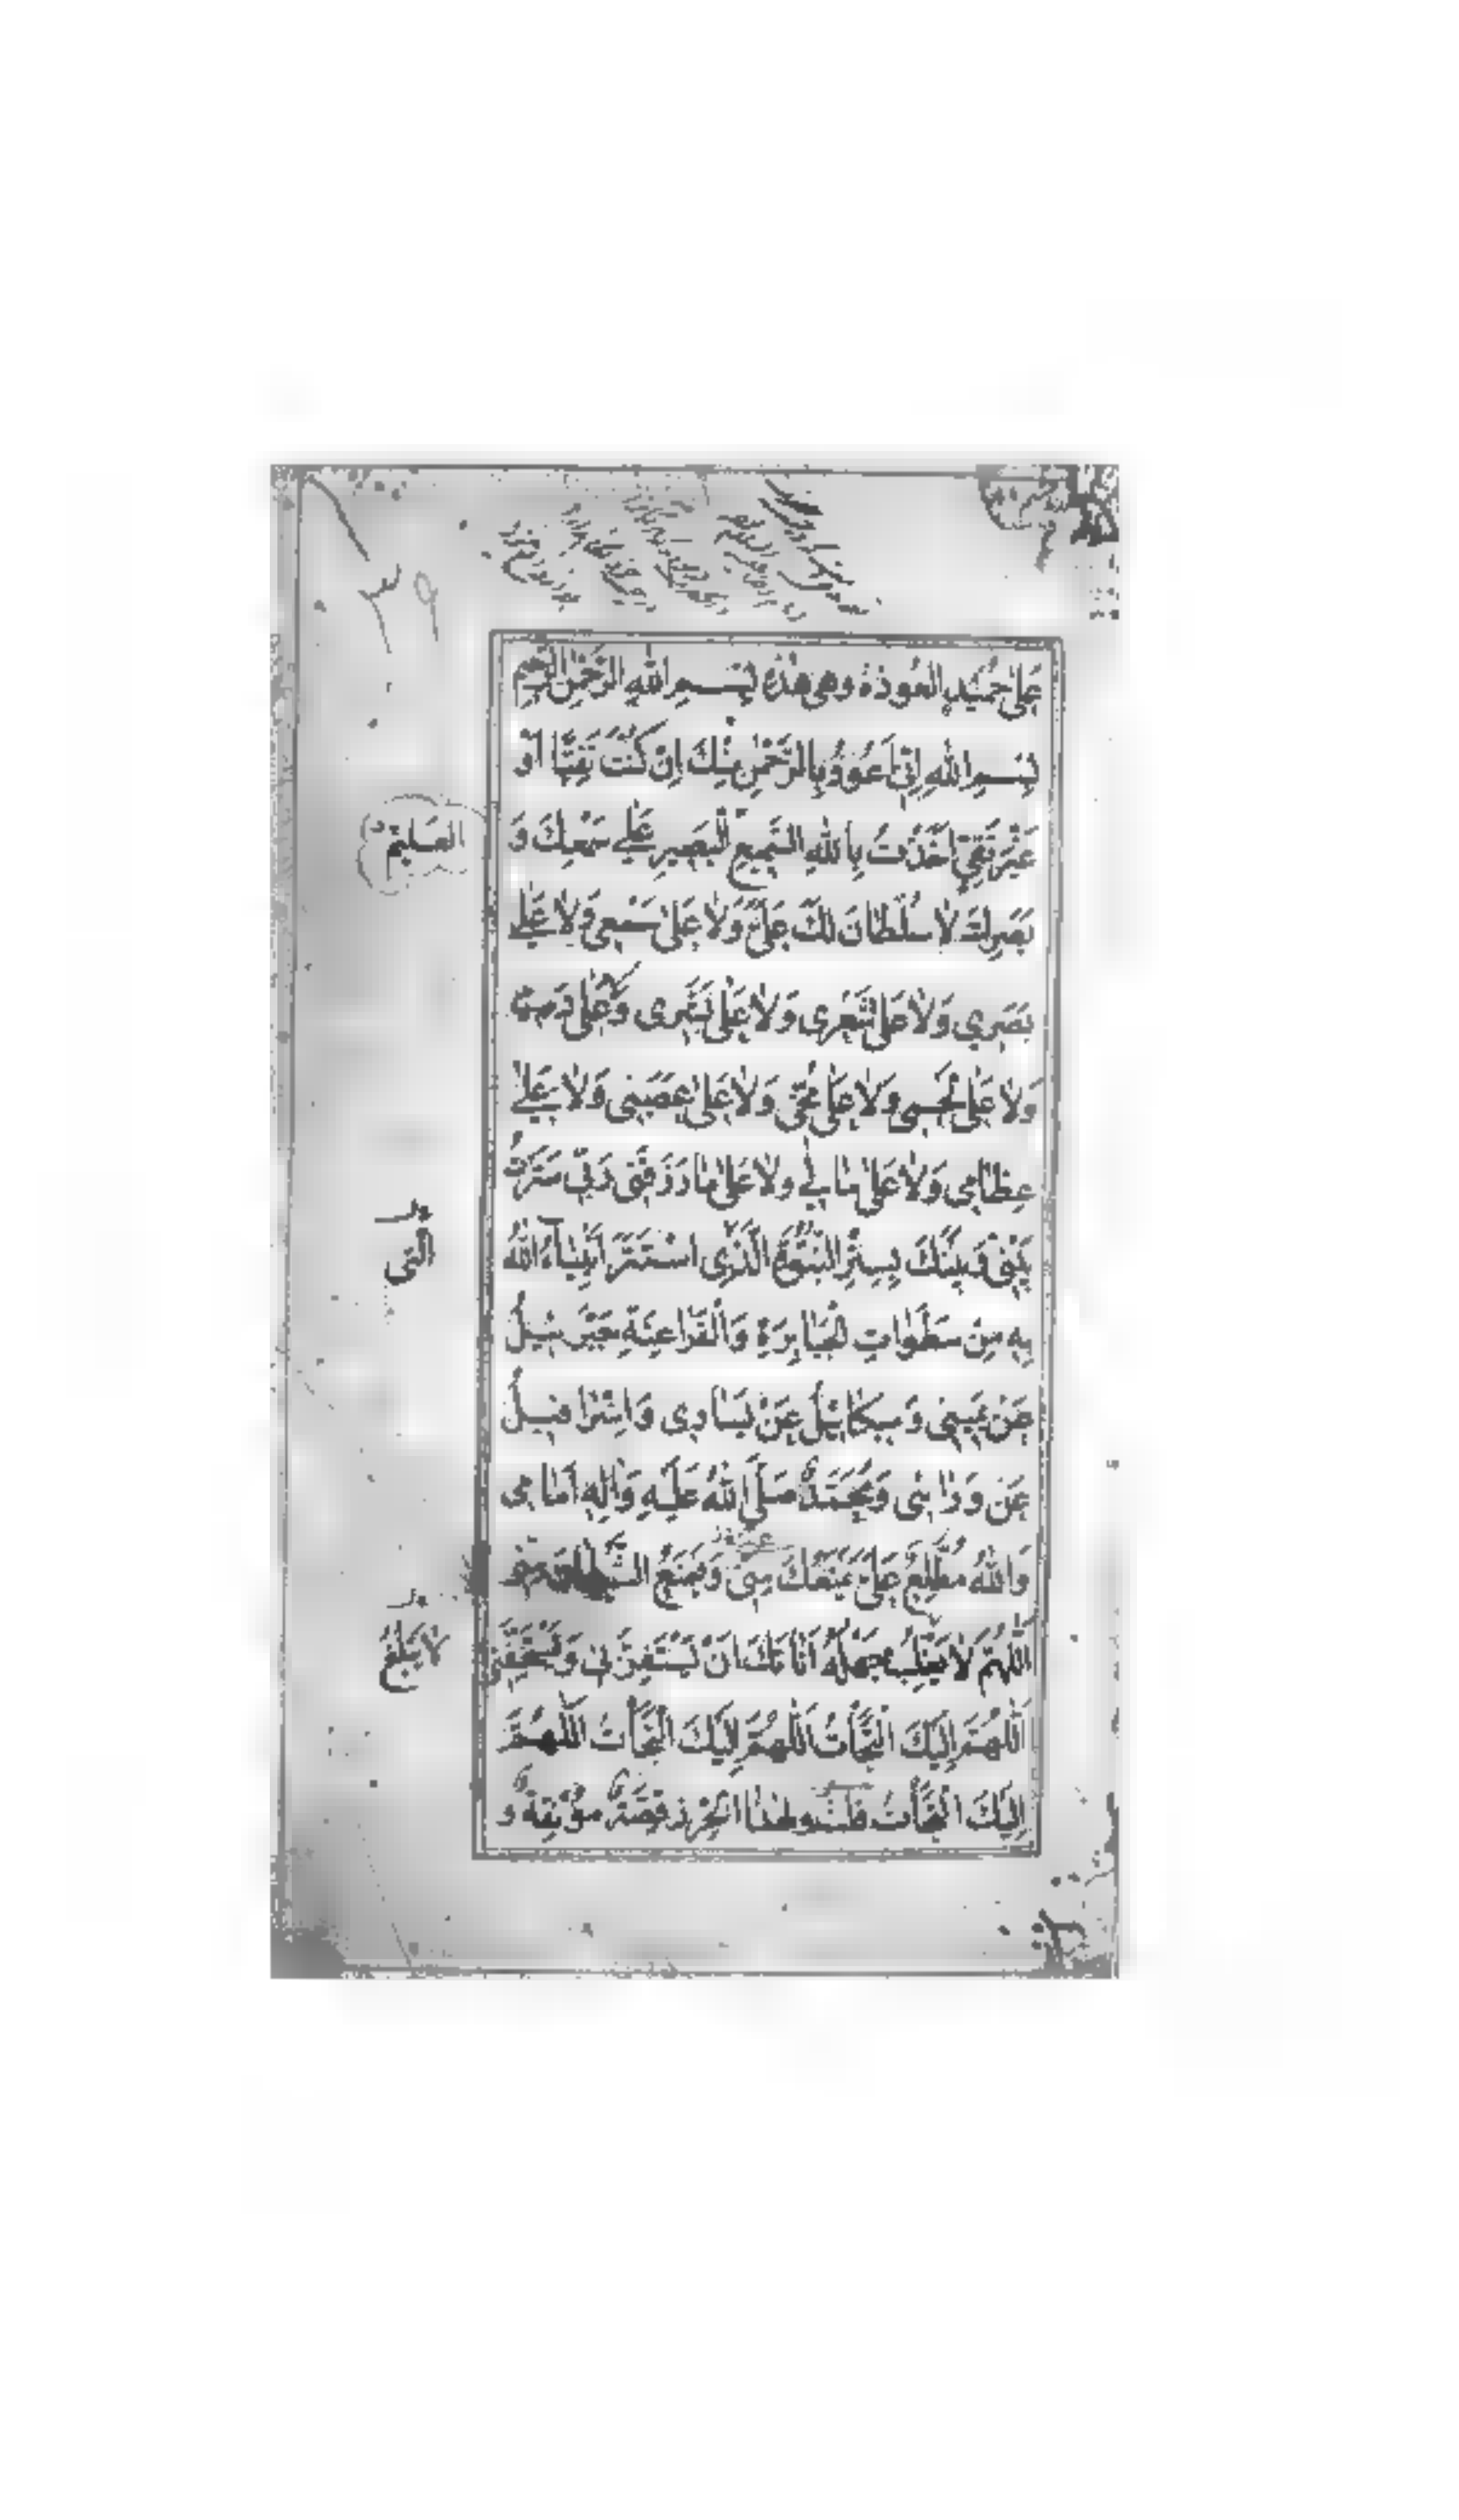 عَلىٰ حُمَيْدٍ العُوذَة وهى هٰذِهِ بِسْمِ اللهِ الرَّحْمٰنِ الرَّحِيمِ
بِسْمِ اللهِ اِنّى اَعُوذُ بِالرَّحْمٰنِ مِنْكَ اِنْ كُنْتَ تَقِيًّا اَوْ
غَيْرَ تَقِيٍّ اَخَذْتُ بِاللهِ السَّمِيعِ الْبَصِيرِ عَلىٰ سَمْعِكَ وَ
العليم
بَصَرِكَ لا سُلْطانَ لَكَ عَلَىَّ وَلا عَلىٰ سَمْعى وَلا عَلىٰ
بَصَرِي وَلا عَلىٰ شَعْرِى وَلا عَلىٰ بَشَرِى وَلا عَلىٰ دَمِى
وَلا عَلىٰ لَحْمِى وَلا عَلىٰ مُخّى وَلا عَلىٰ عَصَبِى وَلا عَلىٰ
عِظامِى وَلا عَلىٰ مالِي ولا عَلىٰ ما رَزَقَنى رَبّى سَتَرْتُ
بَيْنِى وَبَيْنَكَ بِسِتْرِ النُّبُوَّةِ الَّذِى اسْتَتَرَ اَنْبِياءُ اللهِ
التى
بِهِ مِنْ سَطَواتِ الْجَبابِرَةِ وَالْفَراعِنَةِ جَبْرَئِيلُ
عَنْ يَمِينِى وَمِيكائِيلُ عَنْ يَسارِى وَاِسْرافِيلُ
عَنْ وَرائِى وَمُحَمَّدٌ صَلَّى اللهُ عَلَيْهِ وَالِهِ اَمامِى
وَاللهُ مُطَّلِعٌ عَلَىَّ يَمْنَعُكَ مِنّى وَيَمْنَعُ الشَّيْطانَ مِنّى
اَللّٰهُمَّ لا يَغْلِبُ جَهْلُهُ اَناتَكَ اَنْ يَسْتَفِزَّنِى وَيَسْتَخِفَّنِى
لا يَبْلُغُ
اَللّٰهُمَّ اِلَيْكَ الْتَجَأْتُ اَللّٰهُمَّ اِلَيْكَ الْتَجَأْتُ اَللّٰهُمَّ
اِلَيْكَ الْتَجَأْتُ ولهذا الحرز قصّة مونقة و